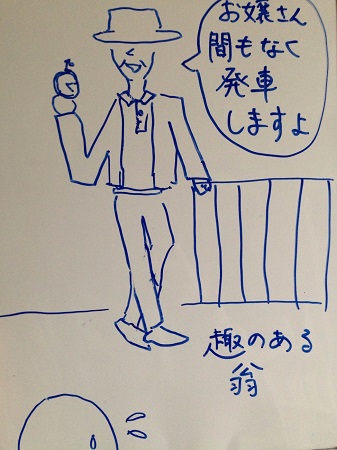 お嬢さん
間もなく
発車
しますよ
趣のある
翁